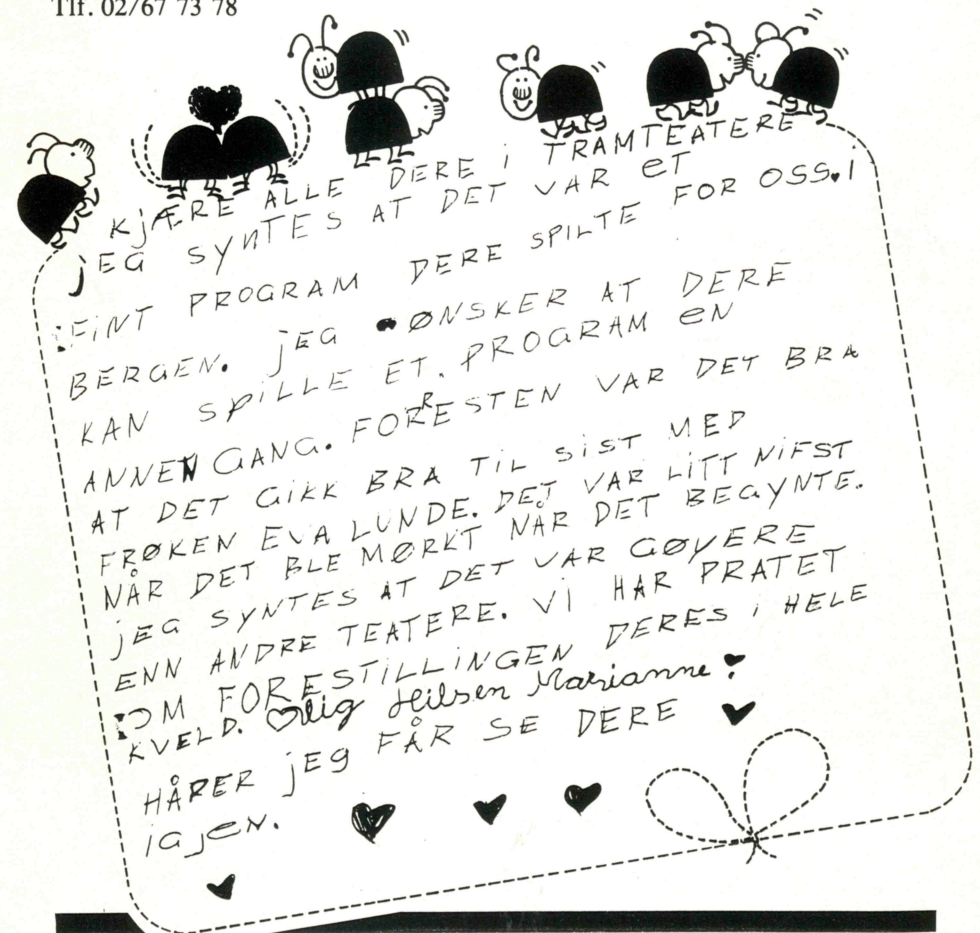 Tlf. 02/67 73 78
KJÆRE ALLE DERE i TRAMTEATERE
jEG SYNTES AT DET VAR ET
FiNT PROGRAM DERE SPILTE FOR OSS. I
BERGEN. jEG ØNSKER AT DERE
KAN SPILLE ET. PROGRAM EN
ANNEN GANG. FORRESTEN VAR DET BRA
AT DET GIKK BRA TIL SIST MED
FRØKEN EVA LUNDE. DET VAR LITT NIFST
NÅR DET BLE MØRKT NÅR DET BEGYNTE.
jEG SYNTES AT DET VAR GØYERE
ENN ANDRE TEATERE. Vi HAR PRATET
OM FORESTILLINGEN DERES i HELE
KVELD. ♡lig Hilsen Marianne!
HÅPER jEG FÅR SE DERE
IGJEN.